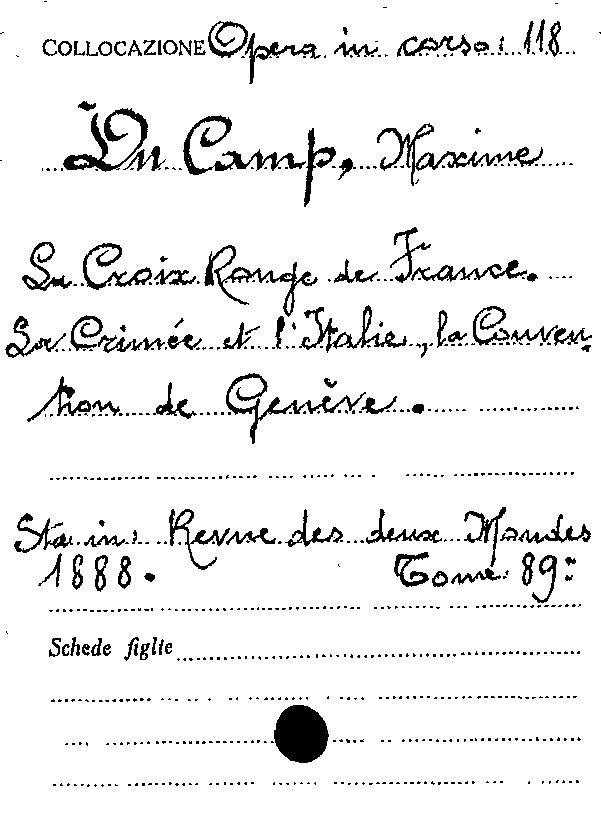 COLLOCAZIONE Opera in corso: 118
Du Camp, Maxime
La Croix Rouge de France.
La Crimée et l'Italie, la Conven-
tion de Genève.
Sta in: Revue des deux Mondes
1888. Tome 89:
Schede figlie